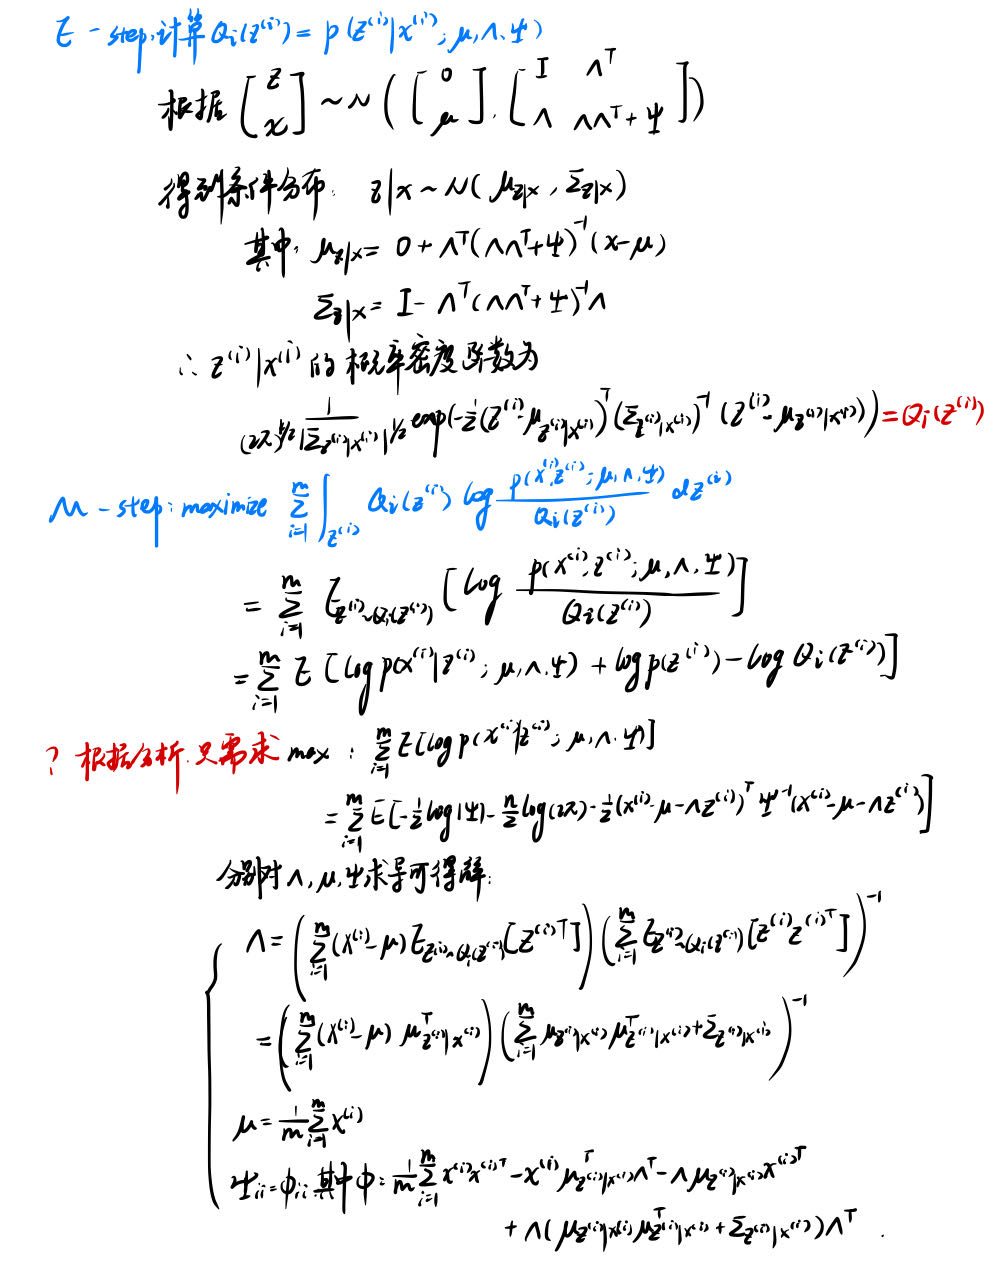 E-step: 计算 Qi(z⁽ⁱ⁾) = p(z⁽ⁱ⁾|x⁽ⁱ⁾; μ,Λ,Ψ)
根据 [z x] ~ N([0 μ], [I Λᵀ Λ ΛΛᵀ+Ψ])
得到条件分布: z|x ~ N(μ_{z|x}, Σ_{z|x})
其中: μ_{z|x} = 0 + Λᵀ(ΛΛᵀ+Ψ)⁻¹(x-μ)
Σ_{z|x} = I - Λᵀ(ΛΛᵀ+Ψ)⁻¹Λ
∴ z⁽ⁱ⁾|x⁽ⁱ⁾ 的概率密度函数为
1/((2π)^{k/2}|Σ_{z⁽ⁱ⁾|x⁽ⁱ⁾}|^{1/2}) exp(-½(z⁽ⁱ⁾-μ_{z⁽ⁱ⁾|x⁽ⁱ⁾})ᵀ(Σ_{z⁽ⁱ⁾|x⁽ⁱ⁾})⁻¹(z⁽ⁱ⁾-μ_{z⁽ⁱ⁾|x⁽ⁱ⁾})) = Qi(z⁽ⁱ⁾)
M-step: maximize Σ_{i=1}^m ∫_{z⁽ⁱ⁾} Qi(z⁽ⁱ⁾) log p(x⁽ⁱ⁾,z⁽ⁱ⁾; μ,Λ,Ψ)/Qi(z⁽ⁱ⁾) dz⁽ⁱ⁾
= Σ_{i=1}^m E_{z⁽ⁱ⁾~Qi(z⁽ⁱ⁾)} [log p(x⁽ⁱ⁾,z⁽ⁱ⁾; μ,Λ,Ψ)/Qi(z⁽ⁱ⁾)]
= Σ_{i=1}^m E [log p(x⁽ⁱ⁾|z⁽ⁱ⁾; μ,Λ,Ψ) + log p(z⁽ⁱ⁾) - log Qi(z⁽ⁱ⁾)]
? 根据分析,只需求 max: Σ_{i=1}^m E[log p(x⁽ⁱ⁾|z⁽ⁱ⁾; μ,Λ,Ψ)]
= Σ_{i=1}^m E[-½log|Ψ| - n/2 log(2π) - ½(x⁽ⁱ⁾-μ-Λz⁽ⁱ⁾)ᵀ Ψ⁻¹(x⁽ⁱ⁾-μ-Λz⁽ⁱ⁾)]
分别对 Λ,μ,Ψ求导可得解:
Λ = (Σ_{i=1}^m (x⁽ⁱ⁾-μ) E_{z⁽ⁱ⁾~Qi(z⁽ⁱ⁾)}[z⁽ⁱ⁾ᵀ]) (Σ_{i=1}^m E_{z⁽ⁱ⁾~Qi(z⁽ⁱ⁾)}[z⁽ⁱ⁾z⁽ⁱ⁾ᵀ])⁻¹
= (Σ_{i=1}^m (x⁽ⁱ⁾-μ) μᵀ_{z⁽ⁱ⁾|x⁽ⁱ⁾}) (Σ_{i=1}^m μ_{z⁽ⁱ⁾|x⁽ⁱ⁾} μᵀ_{z⁽ⁱ⁾|x⁽ⁱ⁾} + Σ_{z⁽ⁱ⁾|x⁽ⁱ⁾})⁻¹
μ = 1/m Σ_{i=1}^m x⁽ⁱ⁾
Ψii = Φii 其中Φ = 1/m Σ_{i=1}^m x⁽ⁱ⁾x⁽ⁱ⁾ᵀ - x⁽ⁱ⁾μᵀ_{z⁽ⁱ⁾|x⁽ⁱ⁾}Λᵀ - Λμ_{z⁽ⁱ⁾|x⁽ⁱ⁾}x⁽ⁱ⁾ᵀ
+ Λ(μ_{z⁽ⁱ⁾|x⁽ⁱ⁾}μᵀ_{z⁽ⁱ⁾|x⁽ⁱ⁾} + Σ_{z⁽ⁱ⁾|x⁽ⁱ⁾})Λᵀ.